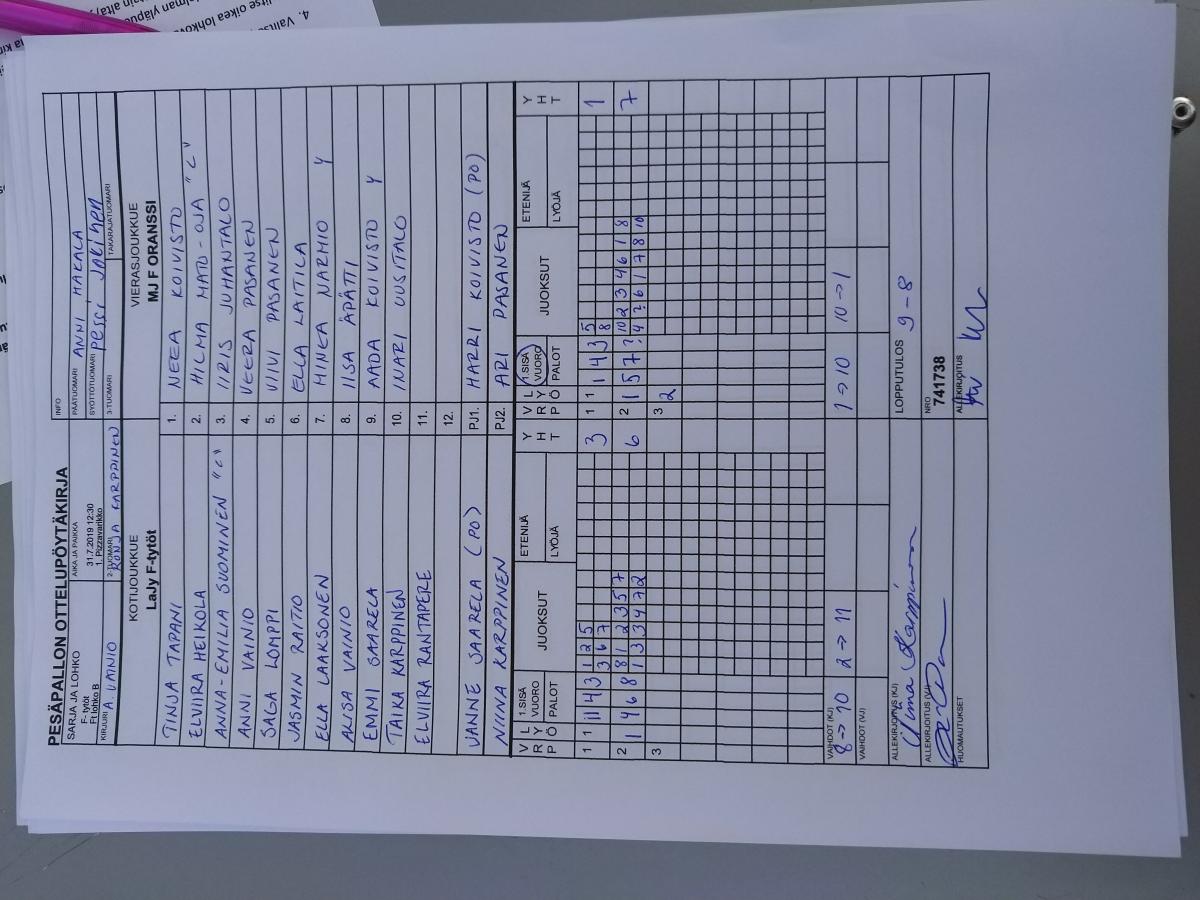 PESÄPALLON OTTELUPÖYTÄKIRJA
SARJA JA LOHKO
F- tytöt
Ft lohko B
AIKA JA PAIKKA
31.7.2019 12:30
1. Pizzavarikko
INFO
PÄÄTUOMARI ANNI MAKALA
SYÖTTÖTUOMARI pessi Jokinen
KIRJURI A. VAINIO
2-TUOMARI RONJA KARPPINEN
3-TUOMARI
TAKARAJATUOMARI
KOTIJOUKKUE
LaJy F-tytöt
VIERASJOUKKUE
MJ F ORANSSI
TINJA TAPANI 1. NEEA KOIVISTO
ELVIIRA HEIKOLA 2. HILMA MATO-OJA "C"
ANNA-EMILIA SUOMINEN "C" 3. IIRIS JUHANTALO
ANNI VAINIO 4. VEERA PASANEN
SAGA LOMPPI 5. VIIVI PASANEN
JASMIN RAITIO 6. ELLA LAITILA
ELLA LAAKSONEN 7. MINEA NARHIO Y
ALISA VAINIO 8. IISA ÄPÄTTI
EMMI SAARELA 9. AADA KOIVISTO Y
TAIKA KARPPINEN 10. INARI UUSITALO
ELVIIRA RANTAPERE 11.
12.
JANNE SAARELA (PO) PJ1. HARRI KOIVISTO (PO)
NIINA KARPPINEN PJ2. ARI PASANEN
V R P L Y Ö 1.SISÄ VUORO PALOT JUOKSUT ETENIJÄ LYÖJÄ Y H T V R P L Y Ö 1.SISÄ VUORO PALOT JUOKSUT ETENIJÄ LYÖJÄ Y H T
1 1 11 4 3 1 2 5 3 1 1 1 4 3 5 1
3 6 7 8
2 1 4 6 8 8 1 2 3 5 7 6 2 1 5 7 10 2 3 4 6 1 8 7
1 3 3 4 7 2 4 6 1 7 8 10
3 3 2
VAIHDOT (KJ)
8→10 2→11 1→10 10→1
VAIHDOT (VJ)
ALLEKIRJOITUS (KJ)
LOPPUTULOS 9-8
ALLEKIRJOITUS (VJ)
NRO
741738
HUOMAUTUKSET
ALLEKIRJOITUS